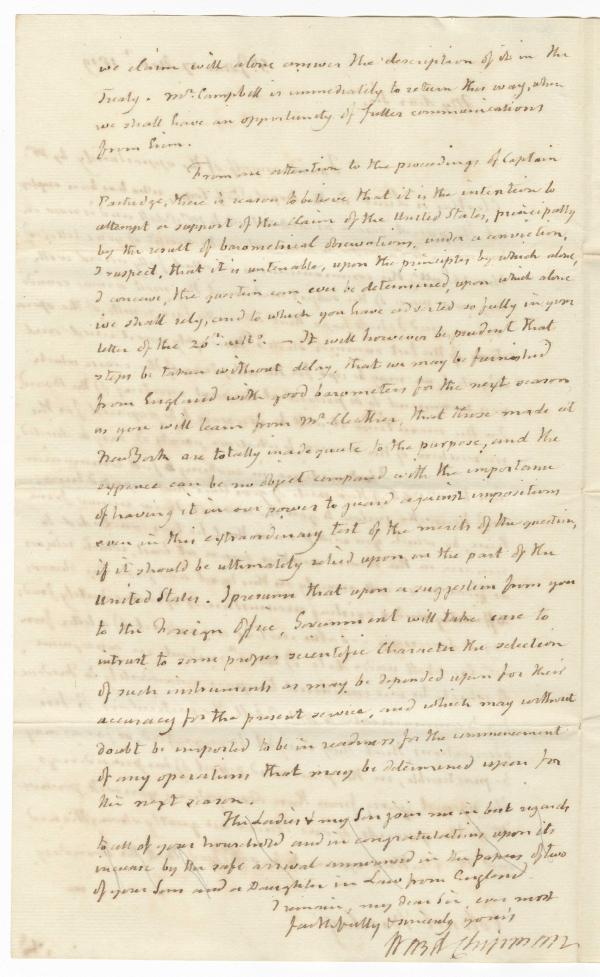 we claim will alone answer the description of it in the
Treaty. Mr. Campbell is immediately to return this way, when
we shall have an opportunity of fuller communications
from him.
From an attention to the proceedings of Captain
Partridge, there is reason to believe that it is the intention to
attempt a support of the claim of the United States, principally
by the result of barometrical observations, under a conviction,
I suspect, that it is untenable, upon the principles by which alone,
I conceive, the question can ever be determined, upon which alone
we shall rely, and to which you have adverted so fully in your
letter of the 26th. ulto. — It will however be prudent that
steps be taken without delay, that we may be furnished
from England with good barometers for the next season
as you will learn from Mr. that those made at
New York are totally inadequate to the purpose, and the
expence can be no object compared with the importance
of having it in our power to guard against impositions
even in this extraordinary test of the merits of the question,
if it should be ultimately relied upon on the part of the
United States. I presume that upon a suggestion from you
to the Foreign Office, Government will take care to
intrust to some proper scientific Character the selection
of such instruments as may be depended upon for their
accuracy for the present service, and which may without
doubt be imported to be in readiness for the commencement
of any operations that may be determined upon for
the next season.
The Ladies & my Son join me in best regards
to all of your household and in congratulations upon its
increase by the safe arrival announced in the papers of two
of your Sons and a Daughter in Law from England.
I remain, my dear Sir, ever most
faithfully & sincerely yours
Ward Chipman